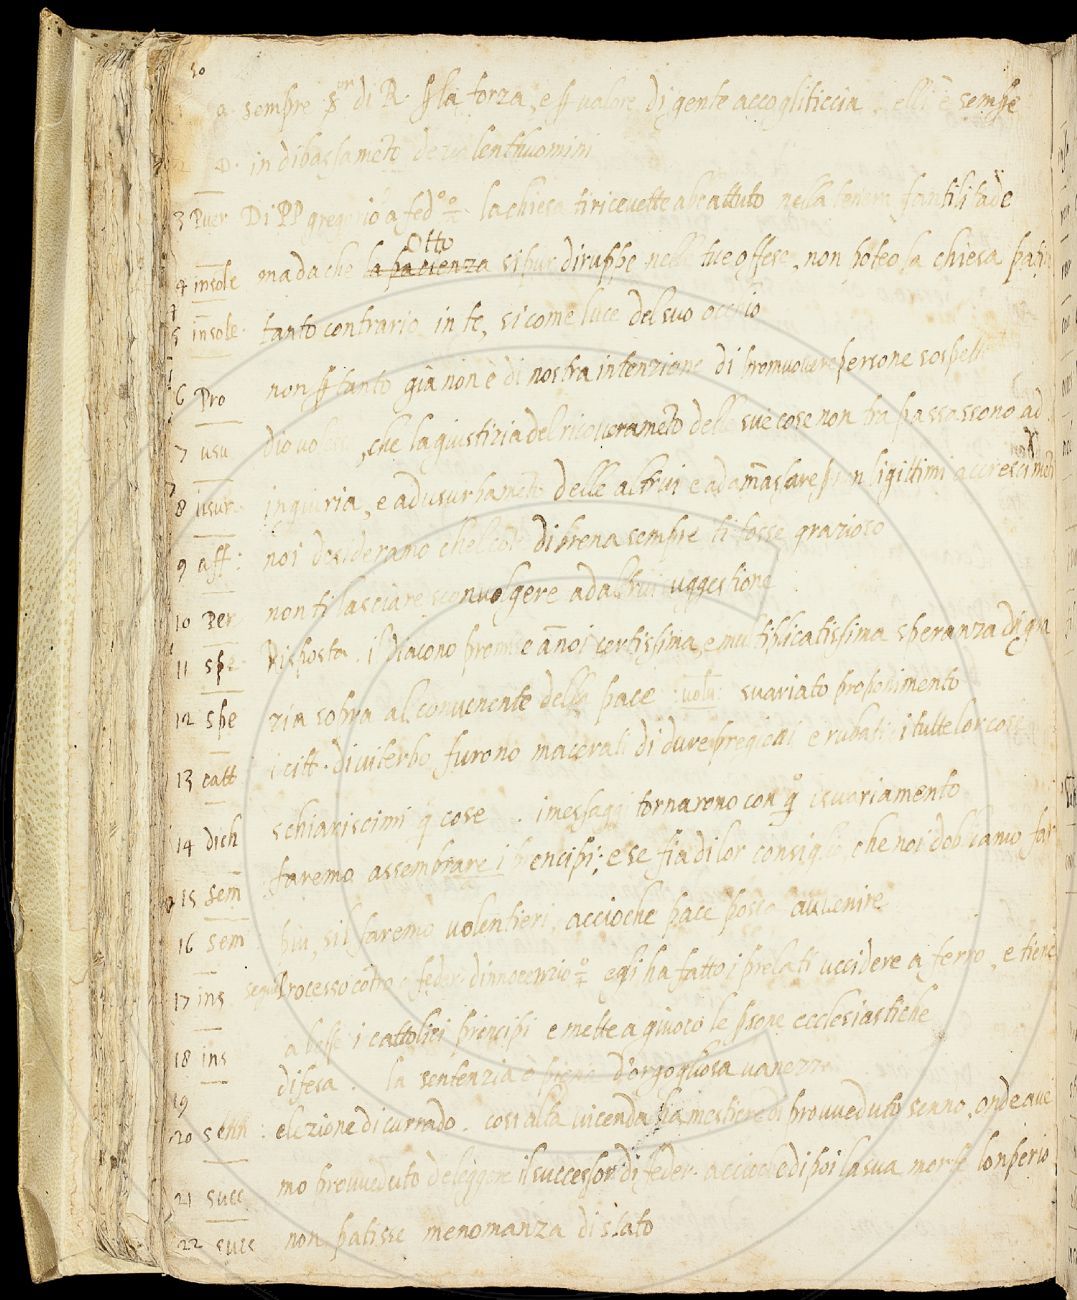 50
a. sempre di R. la forza, e valore di gente accogliticcia. elli è sempre
2 in dibassameto de valenthuomini
3 Puer Di PP gregorio a fed° la chiesa ti ricevette abbattuto nella tenera fantilitade
Otto
4 insole ma da che la pacienza si pur diruppe nelle tue offese, non poteo la chiesa patir
5 insole. tanto contrario in te, si come luce del suo occhio
6 Pro non tanto già non è di nostra intenzione di promuovere persone sospette
7 usu che la giustizia del ricoverameto delle sue cose non trapassassono ad
8 usur ingiuria, e ad usurpameto delle altrui e ad amassare ligittimi accrescimeti
9 aff: noi desiderano di brena sempre ti fosse grazioso
10 Per non ti lasciare sconvolgere ad altrui suggestione
11 spe Risposta. i Diacono premise a noi certissima, e multiplicatissima speranza di gra
12 spe zia sopra al convenente della pace svariato proponimento
13 catt i citt. di viterbo furono macerati di dure pregioni e rubati i tutte lor cose
14 dich schiariscimi q cose. i messaggi tornareno con q° isvariamento
15 sem faremo assembrare i prencipi; e se fia di lor consiglio, che noi dobbiamo far
16 sem: piu, sil faremo volentieri, accioche pace possa avvenire
17 ins segue Processo cotro a feder. d'innocenzio egi ha fatto i prelati uccidere a ferro, e tiene
18 ins a besse i cattolici principi e mette a giuoco le psone ecclesiastiche
19 difesa. la sentenzia è piena d'orgogliosa vanezza
20 senn: elezione di currado. cosi alta vicenda ha mestiere di provveduto senno, onde ave
21 succ mo provveduto deleggere il successor di feder. accioche dipoi la sua morte lonperio
22 succ non patisse menomanza di stato